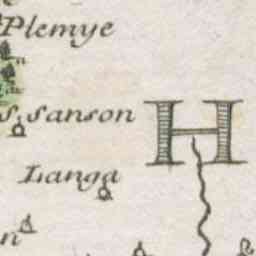 Plemye
S. Sanson
H
Langa